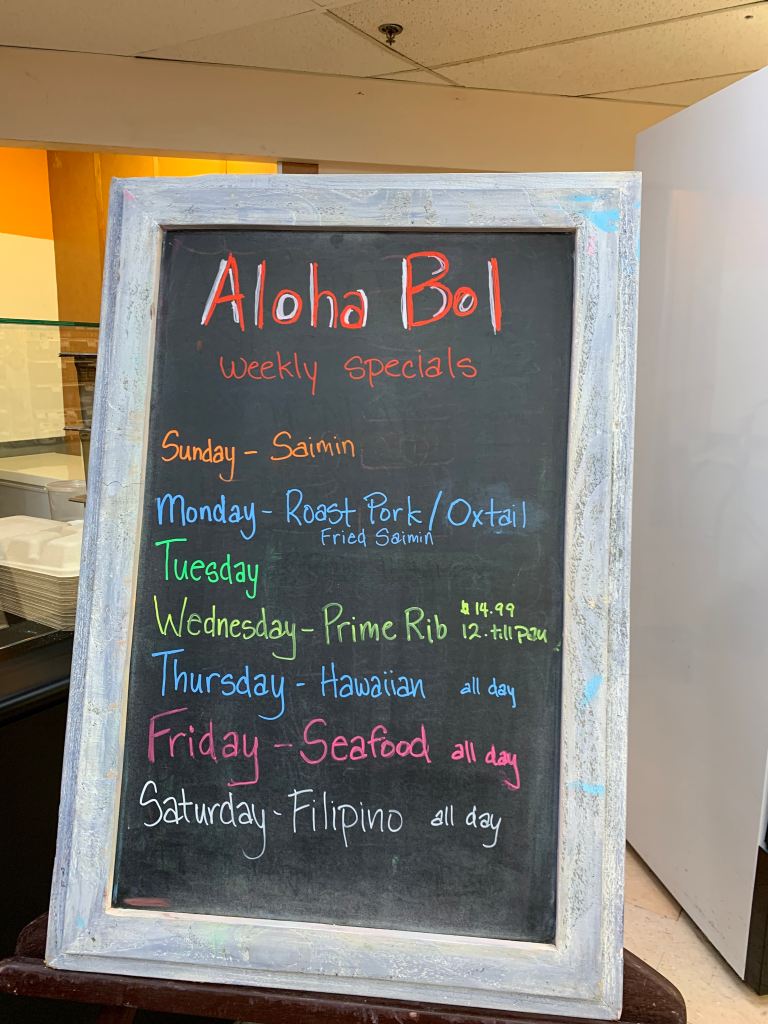 Aloha Bol
weekly specials
Sunday - Saimin
Monday - Roast Pork / Oxtail
Fried Saimin
Tuesday
Wednesday - Prime Rib $14.99
12. till pau
Thursday - Hawaiian all day
Friday - Seafood all day
Saturday - Filipino all day